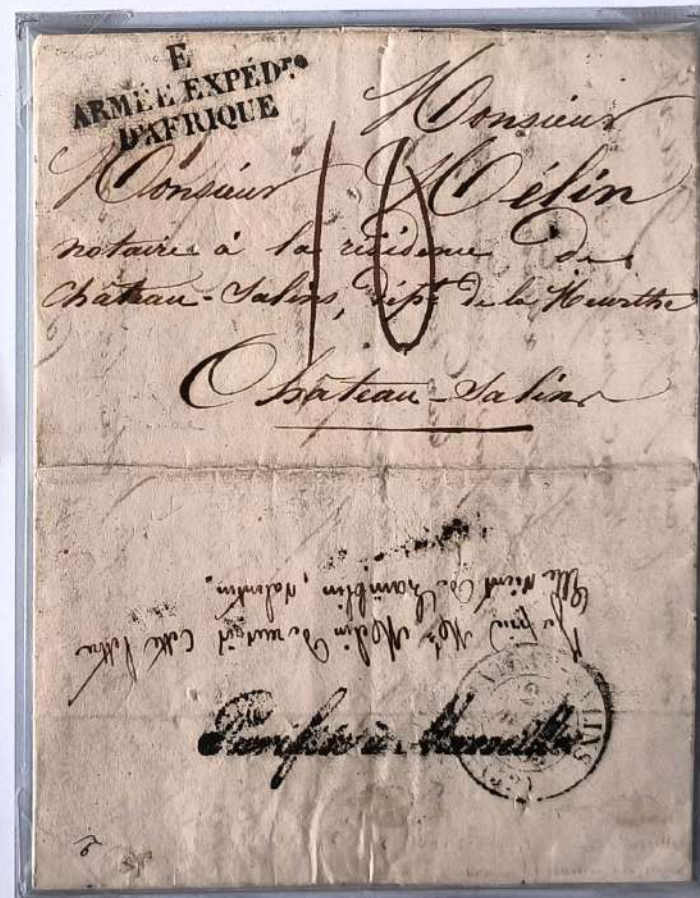 E
ARMÉE EXPÉD.re
D'AFRIQUE
Monsieur
Monsieur Hélin
notaire à la résidence de
château-Salins, dépt de la Meurthe
10
Château-Salins
Je prie Mr Hélin de recevoir cette lettre
Elle vient de Chamblin, Valentin.
Purifié à Marseille